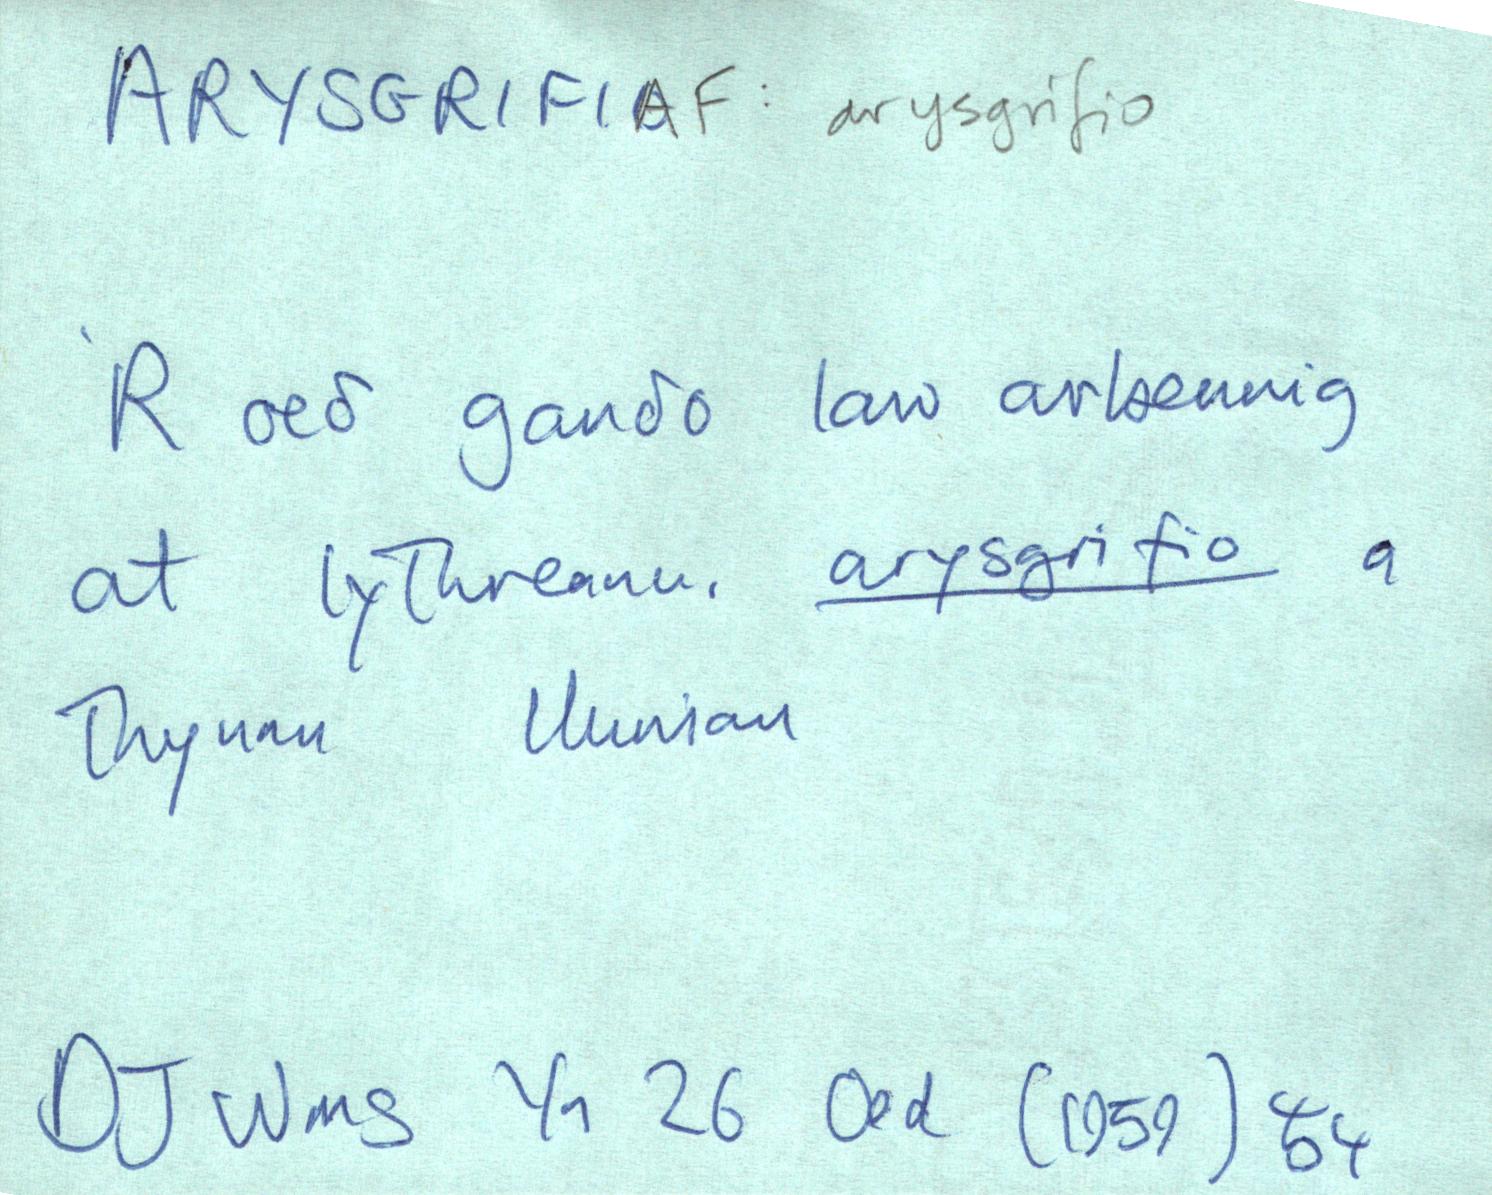 ARYSGRIFIAF: arysgrifio
'R oeδ ganδo law arbennig
at lythrennu, arysgrifio a
Thynnu lluniau
DJ Wms Yn 26 Oed (1959) 54